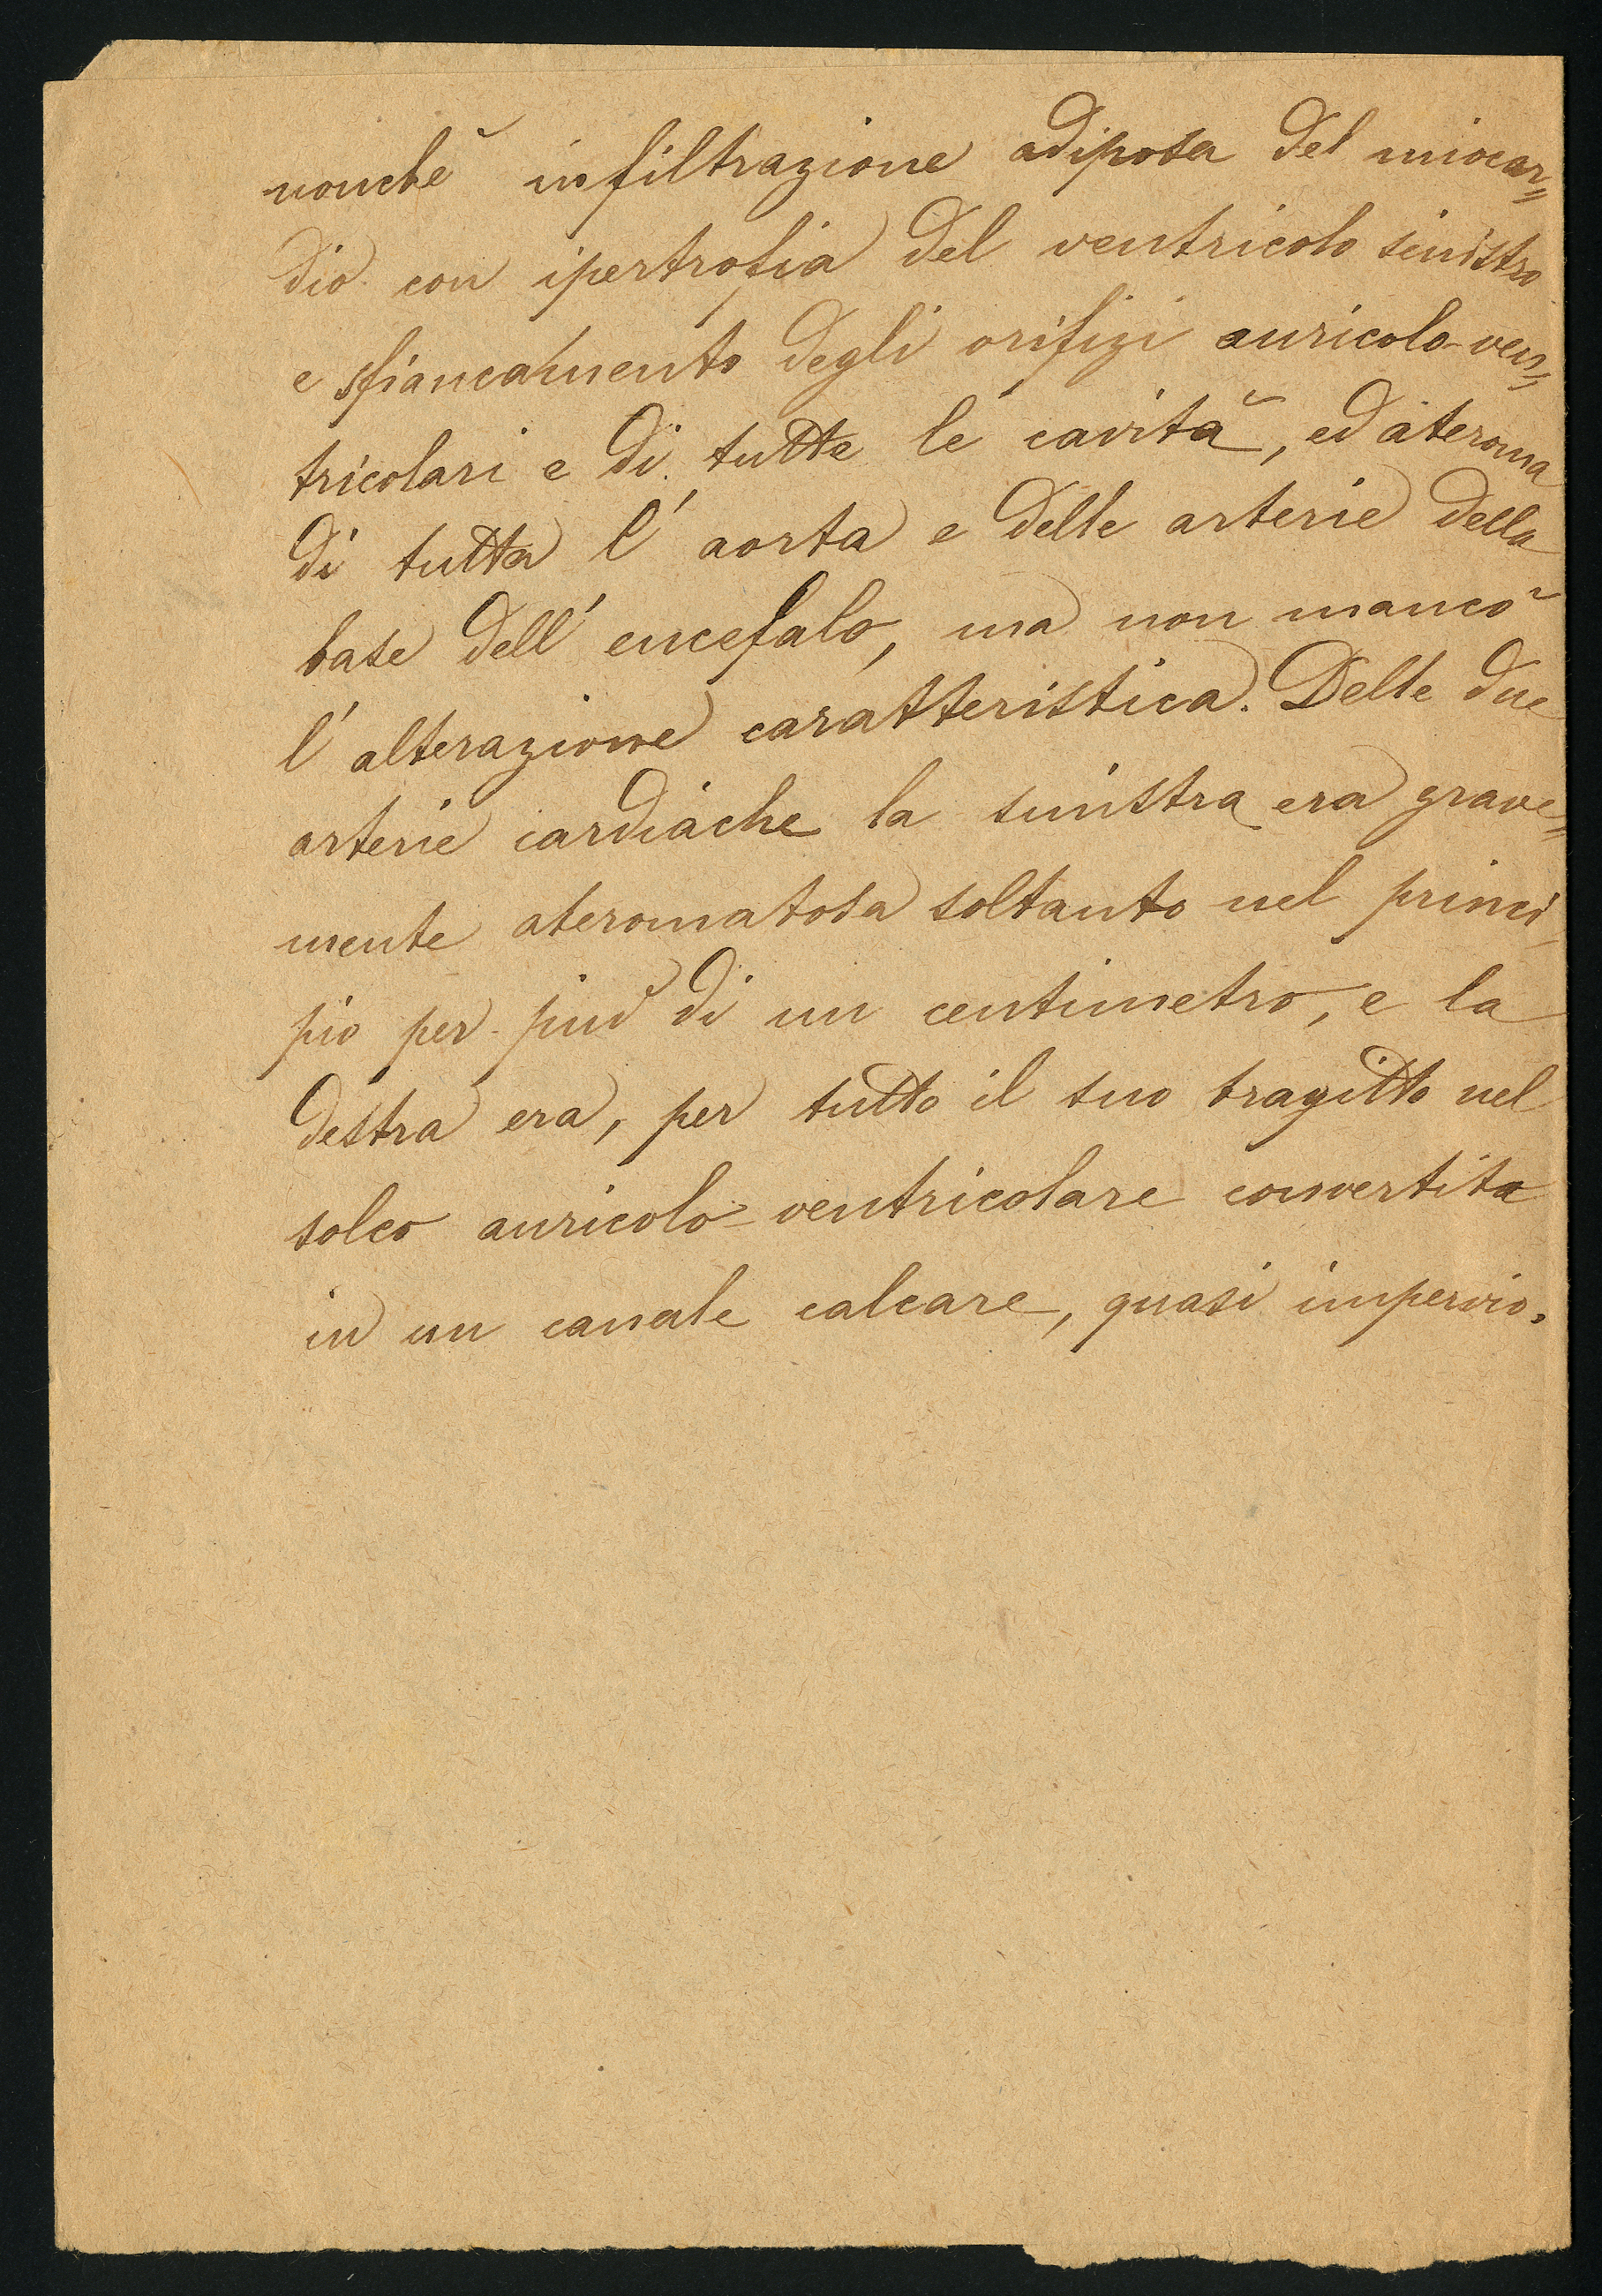 nonchè infiltrazione adiposa del miocar=
dio con ipertrofia del ventricolo sinistro
e sfiancamento degli orifizi auricolo-ven=
tricolari e di tutte le cavità, ed ateroma
di tutta l' aorta e delle arterie della
base dell' encefalo, ma non mancò
l' alterazione caratteristica. Delle due
arterie cardiache la sinistra era grave=
mente ateromatosa soltanto nel princi-
pio per più di un centimetro, e la
destra era, per tutto il suo tragitto nel
solco auricolo-ventricolare convertita
in un canale calcare, quasi impervio.